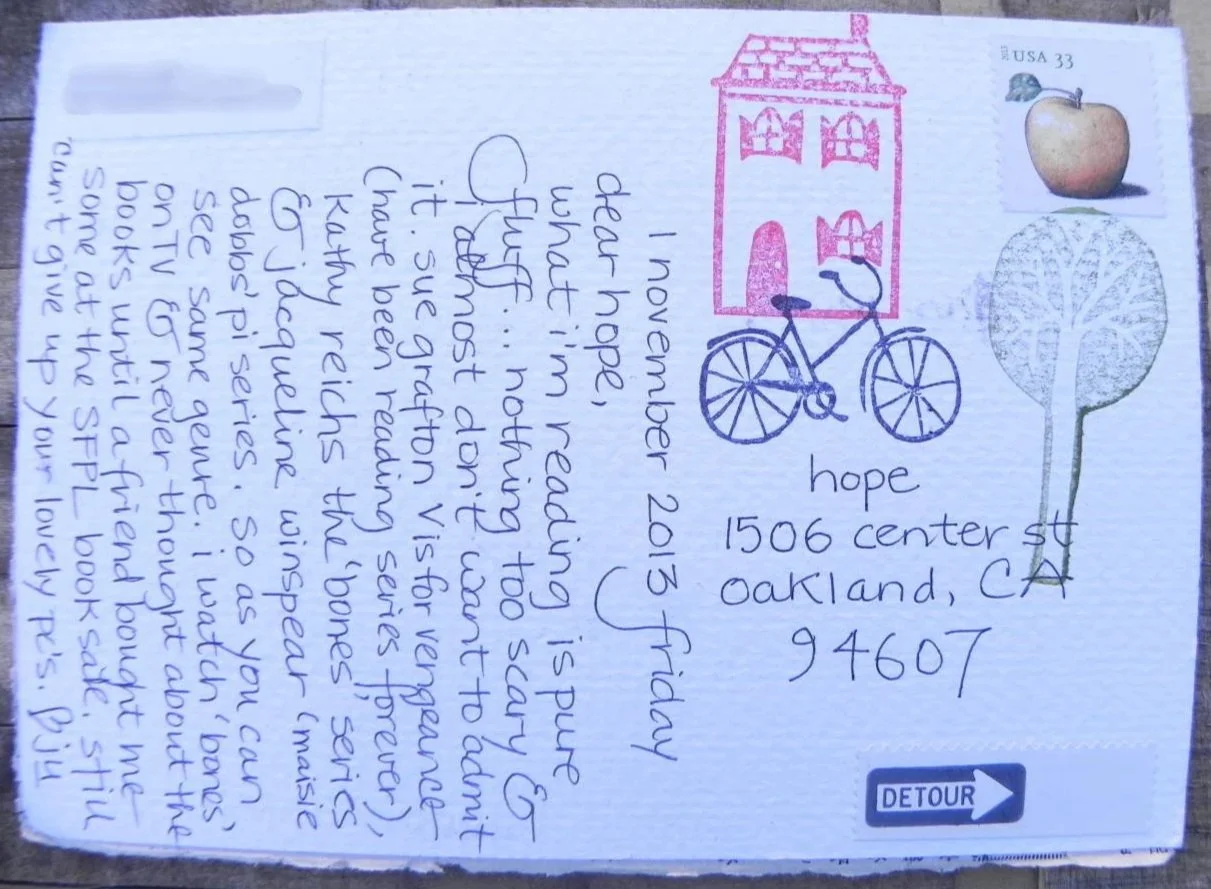 1 november 2013 friday
dear hope,
what i'm reading is pure
fluff... nothing too scary &
i almost don't want to admit
it. sue grafton V is for vengeance
(have been reading series forever),
kathy reichs the 'bones' series
& jacqueline winspear (maisie
dobbs' pi series. so as you can
see same genre. i watch 'bones'
on TV & never thought about the
books until a friend bought me
some at the SFPL book sale. still
can't give up your lovely pc's.
USA 33
2013
hope
1506 center st
oakland, CA
94607
DETOUR